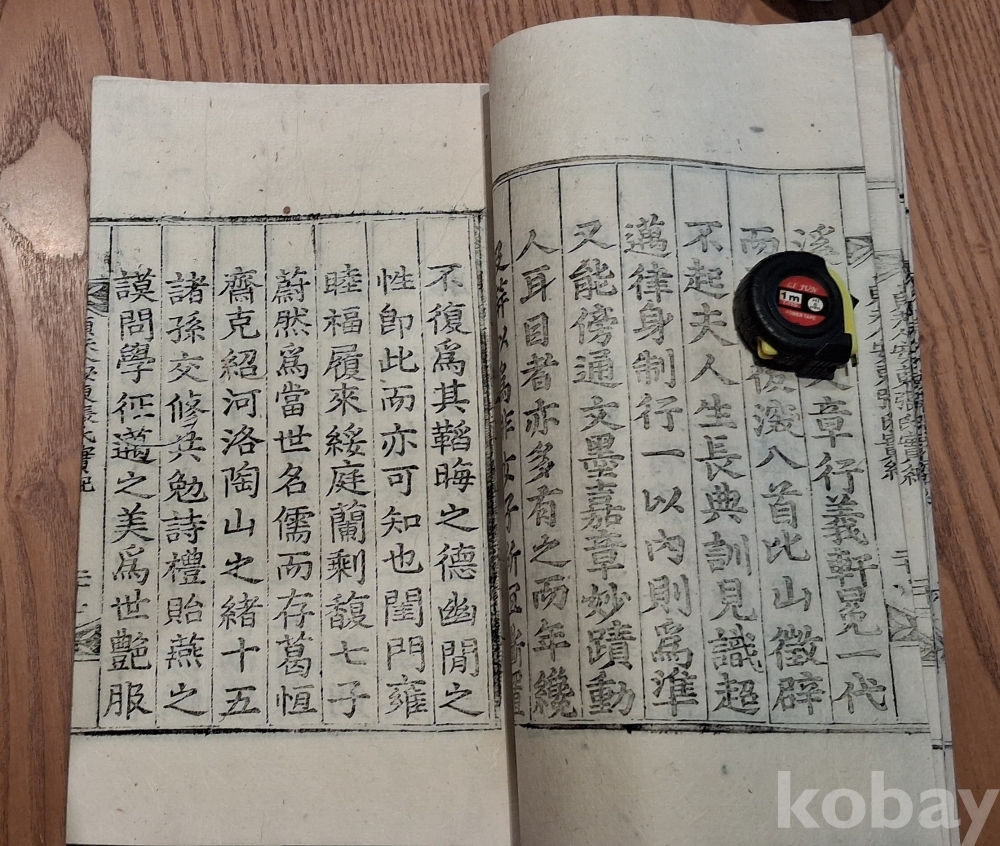 文章行義軒冕一代
而 後漢八首比山徵辟
不起夫人生長典訓見識超
邁律身制行一以內則爲準
又能傍通文墨嘉章妙蹟動
人耳目者亦多有之而年纔
以爲非女子所宜
不復爲其韜晦之德幽閒之
性卽此而亦可知也閨門雍
睦福履來綏庭蘭剩馥七子
蔚然爲當世名儒而存葛恒
齋克紹河洛陶山之緖十五
諸孫交修共勉詩禮貽燕之
謨問學征邁之美爲世艶服
1m
POWER TAPE
kobay